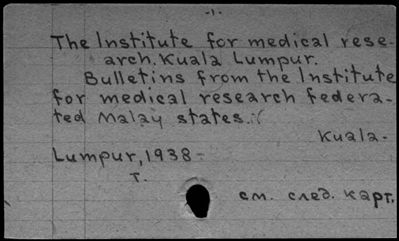 -1-
The Institute for medical rese-
arch. Kuala Lumpur.
Bulletins from the Institute
for medical research federa-
ted Malay states.
Kuala-
Lumpur, 1938-
т.
см. след. карт.